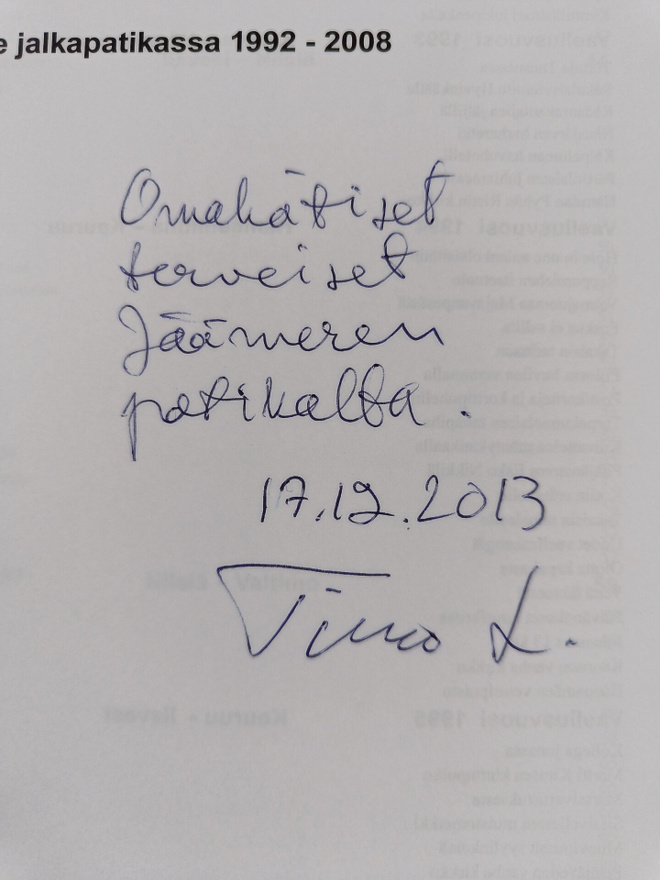 e jalkapatikassa 1992 - 2008
Omakätiset
terveiset
Jäämeren
patikalta.
17.12.2013
Timo L.